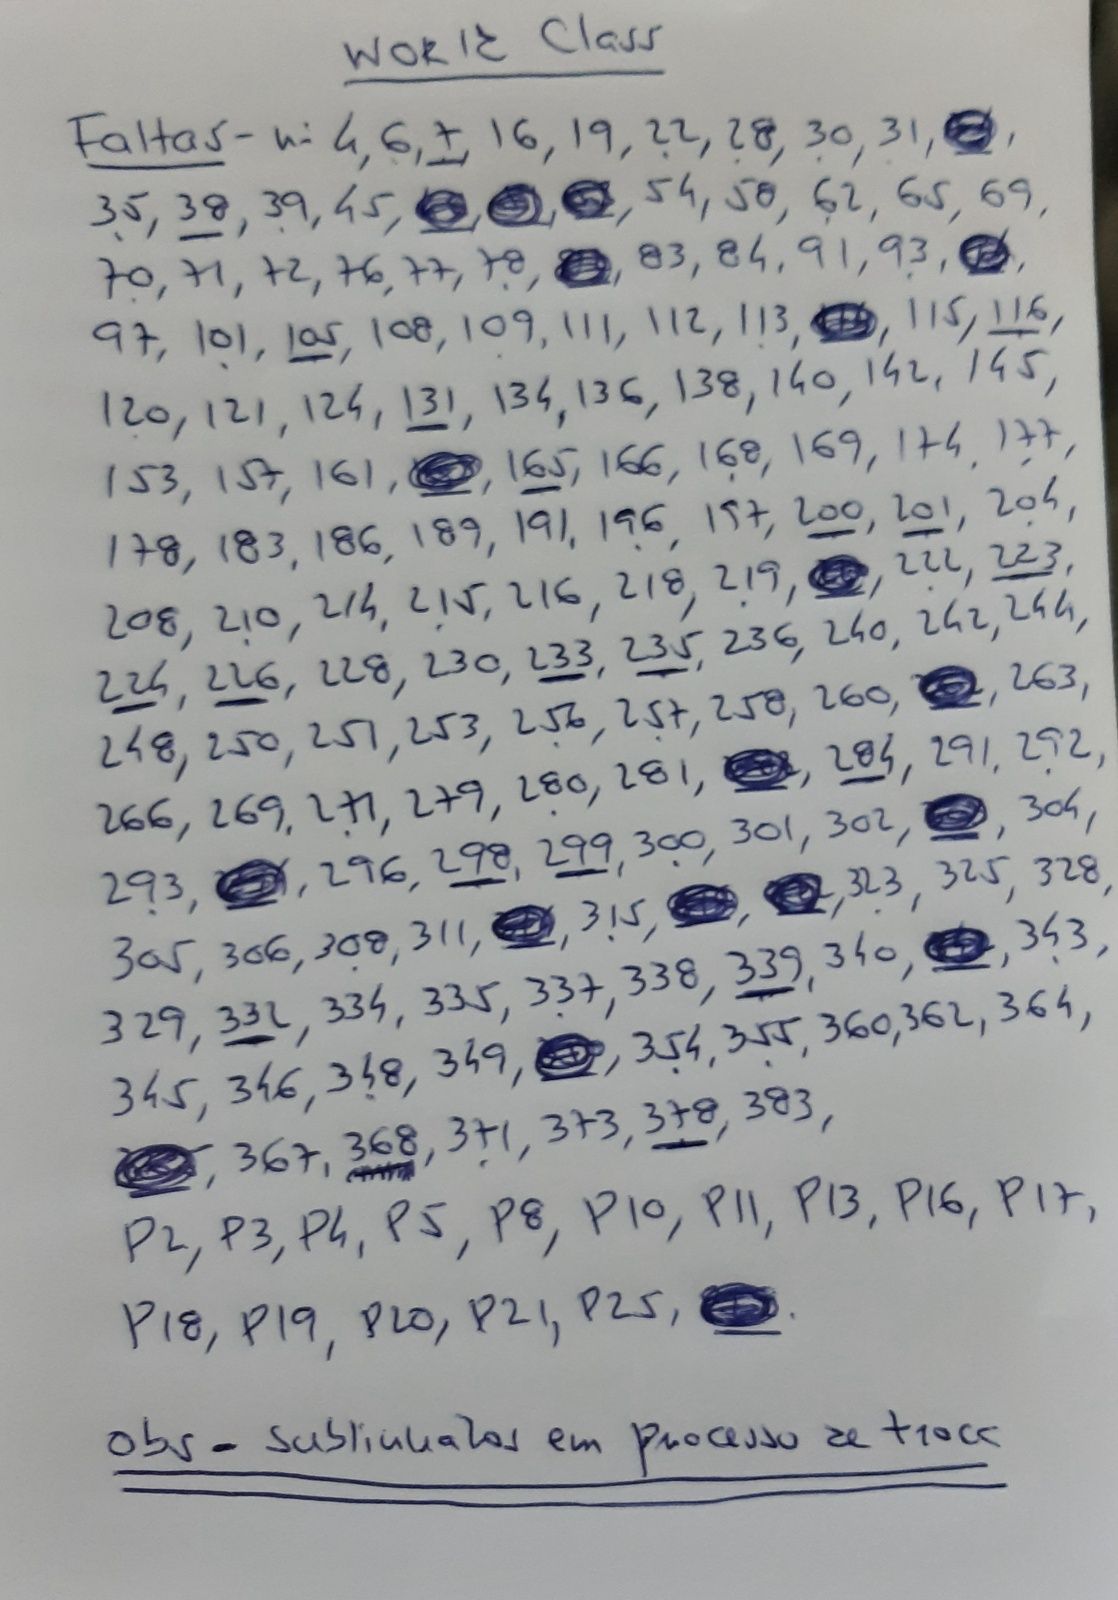 World Class
Faltas - nº 4, 6, 7, 16, 19, 22, 28, 30, 31,
35, 38, 39, 45, 54, 58, 62, 65, 69,
70, 71, 72, 76, 77, 78, 83, 84, 91, 93,
97, 101, 105, 108, 109, 111, 112, 113, 115, 116,
120, 121, 124, 131, 134, 136, 138, 140, 142, 145,
153, 157, 161, 165, 166, 168, 169, 174, 177,
178, 183, 186, 189, 191, 196, 197, 200, 201, 204,
208, 210, 214, 215, 216, 218, 219, 222, 223,
224, 226, 228, 230, 233, 235, 236, 240, 242, 244,
248, 250, 251, 253, 256, 257, 258, 260, 263,
266, 269, 271, 279, 280, 281, 284, 291, 292,
293, 296, 298, 299, 300, 301, 302, 304,
305, 306, 308, 311, 315, 323, 325, 328,
329, 332, 334, 335, 337, 338, 339, 340, 343,
345, 346, 348, 349, 354, 355, 360, 362, 364,
367, 368, 371, 373, 378, 383,
P2, P3, P4, P5, P8, P10, P11, P13, P16, P17,
P18, P19, P20, P21, P25, .
obs - sublinhados em processo de troca